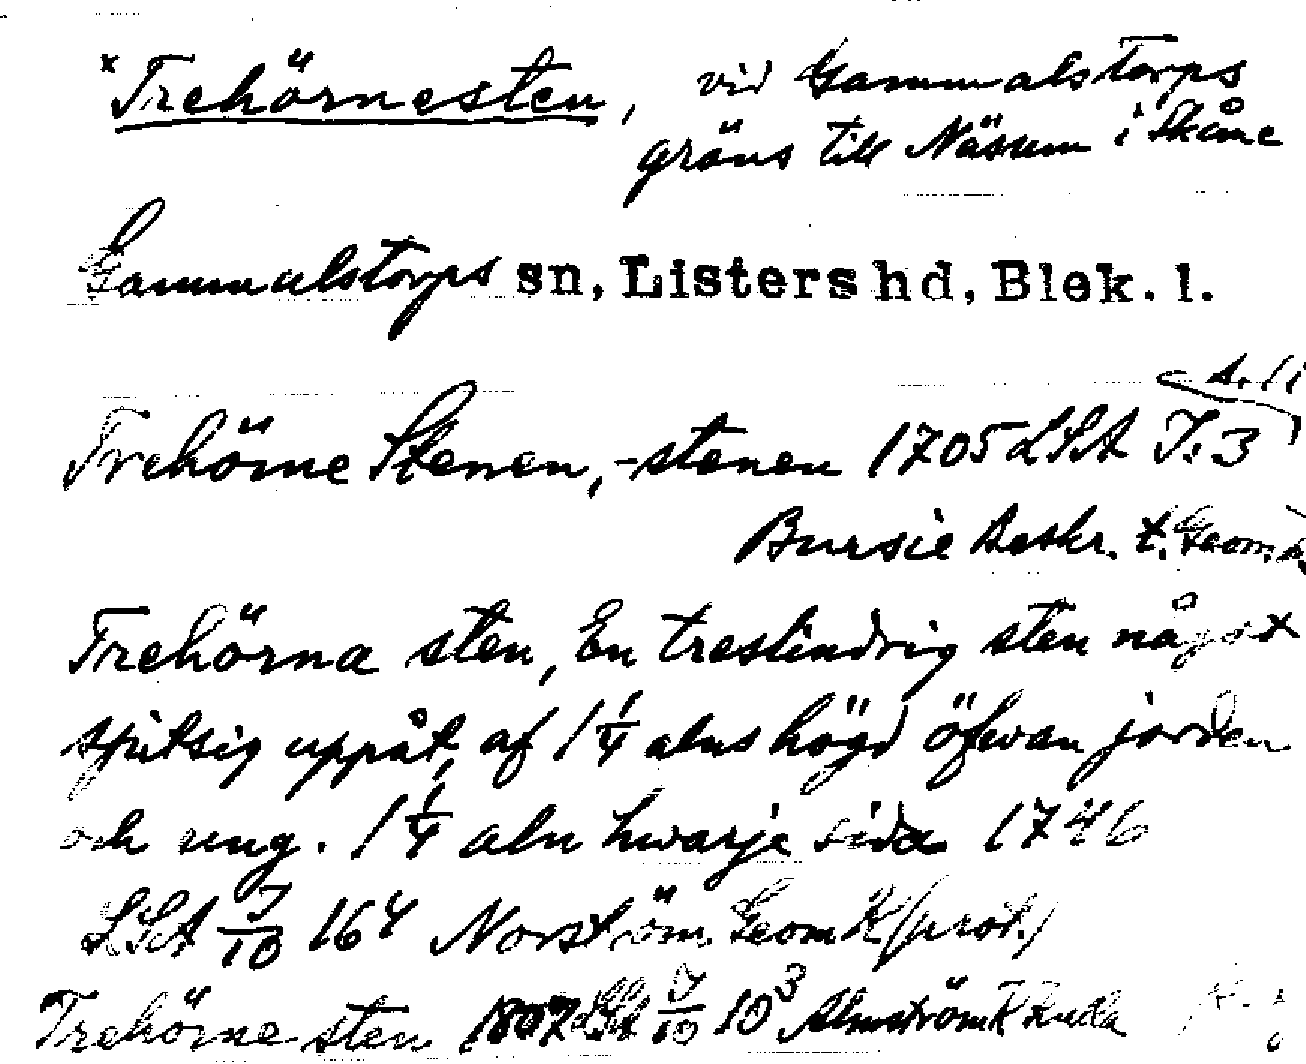 * Trehörnesten, vid Gammalstorps
gräns till Näsum i Skåne
Gammalstorps sn, Listers hd, Blek. l.
Trehörne Stenen, -stenen 1705 LSA J. 3
Bursie Beskr. t. Geom.
Trehörna sten, En treslindrig sten något
spitsig uppåt, af 1 1/4 alns högd öfwan jorden
och ung. 1 1/4 aln hwarje sida 1746
LSA J/10 16⁴ Norström Geom K (prot.)
Trehörne sten 1807 LSA J/10 10³ Almström K